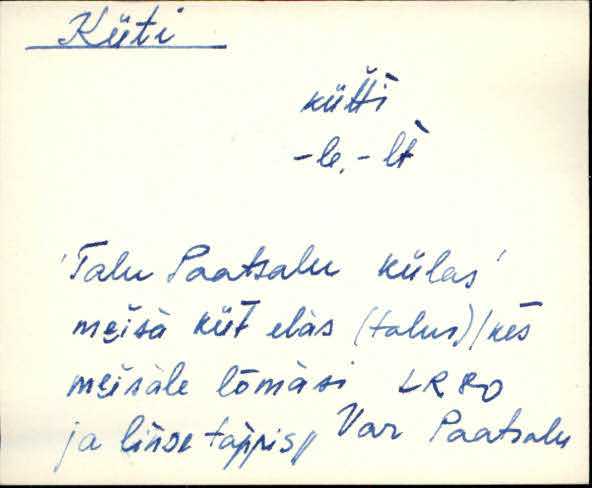 Küti
küt̆t̀i
-le, -lt̀
'Talu Paatsalu külas'
mẹisà küt̄ elàs (talus) / kes
mẹisàle lōmàsi LR 80
ja linde tappis // Var Paatsalu